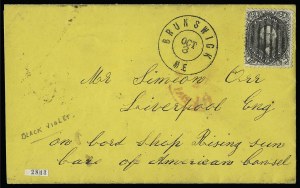 BRUNSWICK
OCT
3
ME
Mr Simeon Orr
Liverpool Eng
BLACK VIOLET
on bord ship Rising sun
care of American Consel